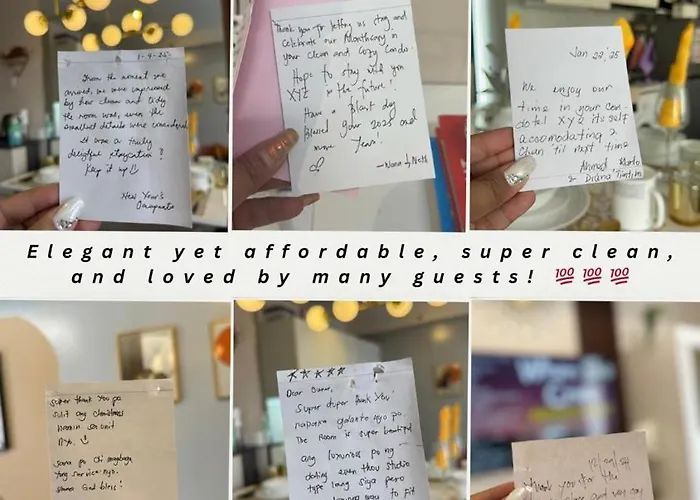 1-4-25
From the moment we
arrived, we were impressed
by how clean and tidy
the room was, even the
smallest details were considered.
It was a truly
delightful staycation!
Keep it up
New Year's
Occupants
Thank you for letting us stay and
celebrate our Monthsary in
your clean and Cozy Condo
Hope to stay with you
XYZ in the future!
Have a blast day
Blessed your 2025 and
more years!
Jan 22 '25
We enjoy our
time in your Con-
do tel XYZ itself
accomodating &
clean 'til next time
Ahmed
& Diana
Elegant yet affordable, super clean,
and loved by many guests! 💯 💯 💯
Super thank you po
sulit ang christmas
namin sa unit
nyo.
sana po di magbago
yung service nyo.
God bless!
Dear Owner,
Super duper thank you!
napaka galante nyo po.
The Room is super beautiful
ang luxurious po ng
dating even thou studio
type lang siya pero
way to fit
12/24
Thank you for the